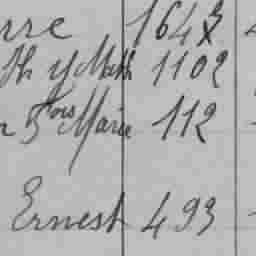 rre 1643
th y Math 1102
n Fois Marie 112
Ernest 493